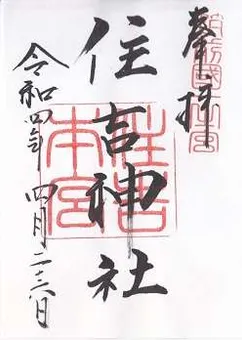 奉拝
住吉神社
住吉本宮
令和四年 四月二十六日